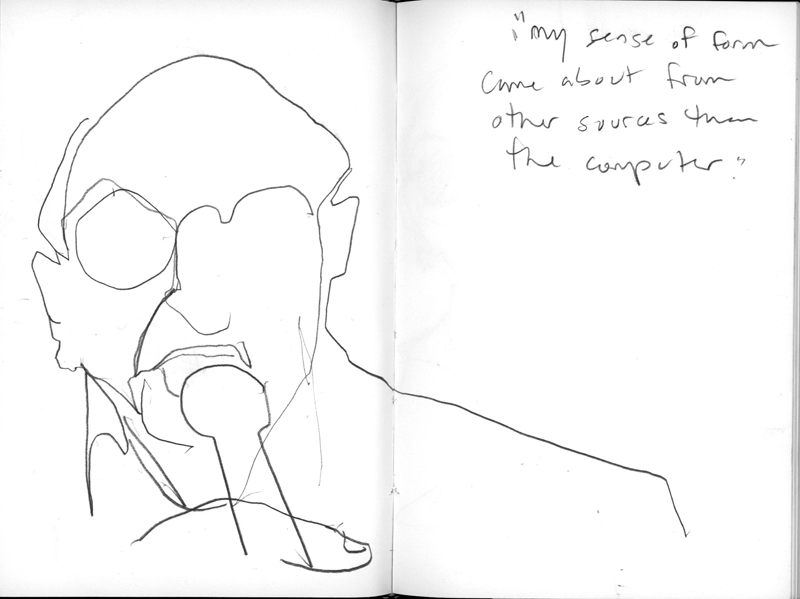 "my sense of form
came about from
other sources than
the computer."